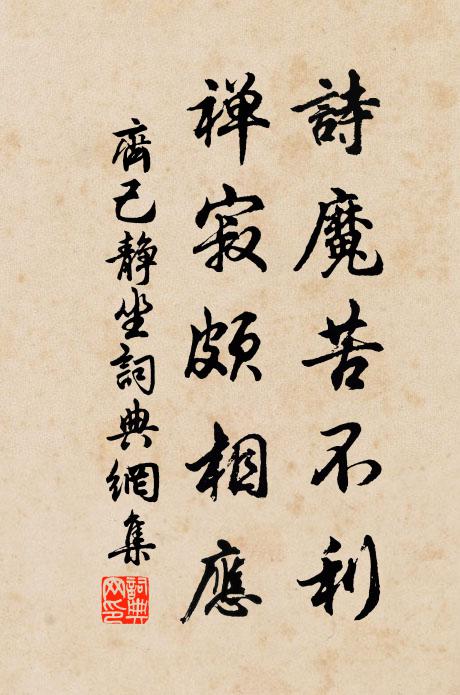 詩魔苦不利
禅寂頗相應
齊己静坐詞典網集
詞典网印